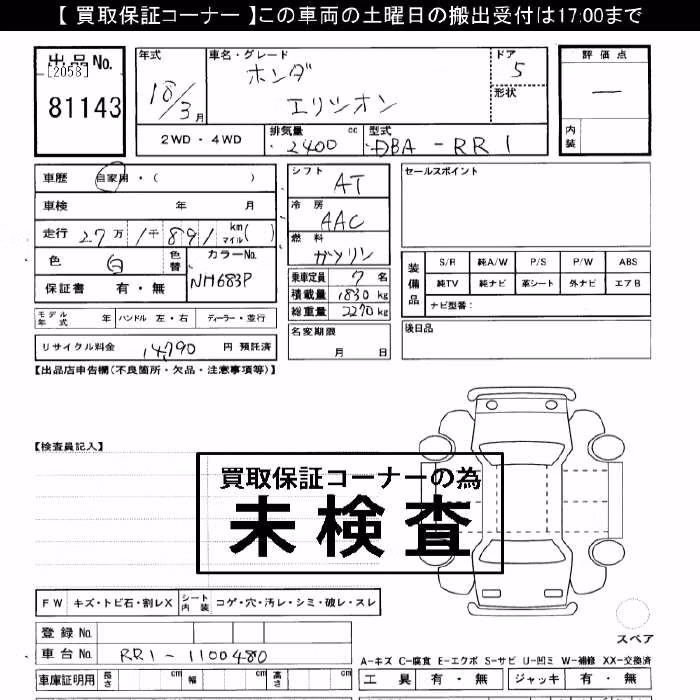 【 買取保証コーナー 】この車両の土曜日の搬出受付は17:00まで
出品No.
[2058]
81143
年式
18/3月
車名・グレード
ホンダ
エリシオン
ドア
5
形状
評価点
—
内装
2WD・4WD
排気量 cc
2400
型式
DBA-RR1
車歴 自家用・( )
車検 年 月
走行 27万1千891 km マイル( )
色 白 色替
カラーNo.
NH683P
保証書 有・無
シフト
AT
冷房
AAC
燃料
ガソリン
乗車定員 7名
積載量 1830kg
総重量 2270kg
名変期限
月 日
セールスポイント
装備品
S/R 純A/W P/S P/W ABS
純TV 純ナビ 革シート 外ナビ エアB
ナビ型番:
後日品
モデル年式 年 ハンドル 左・右 ディーラー・並行
リサイクル料金 14,790 円 預託済
【出品店申告欄(不良箇所・欠品・注意事項等)】
【検査員記入】
買取保証コーナーの為
未検査
FW キズ・トビ石・割レX シート内装 コゲ・穴・汚レ・シミ・破レ・スレ
スペア
登録No.
車台No. RR1-1100480
車庫証明用 長さ cm 幅 cm 高さ cm
A-キズ C-腐食 E-エクボ S-サビ U-凹ミ W-補修 XX-交換済
工具 有・無 ジャッキ 有・無